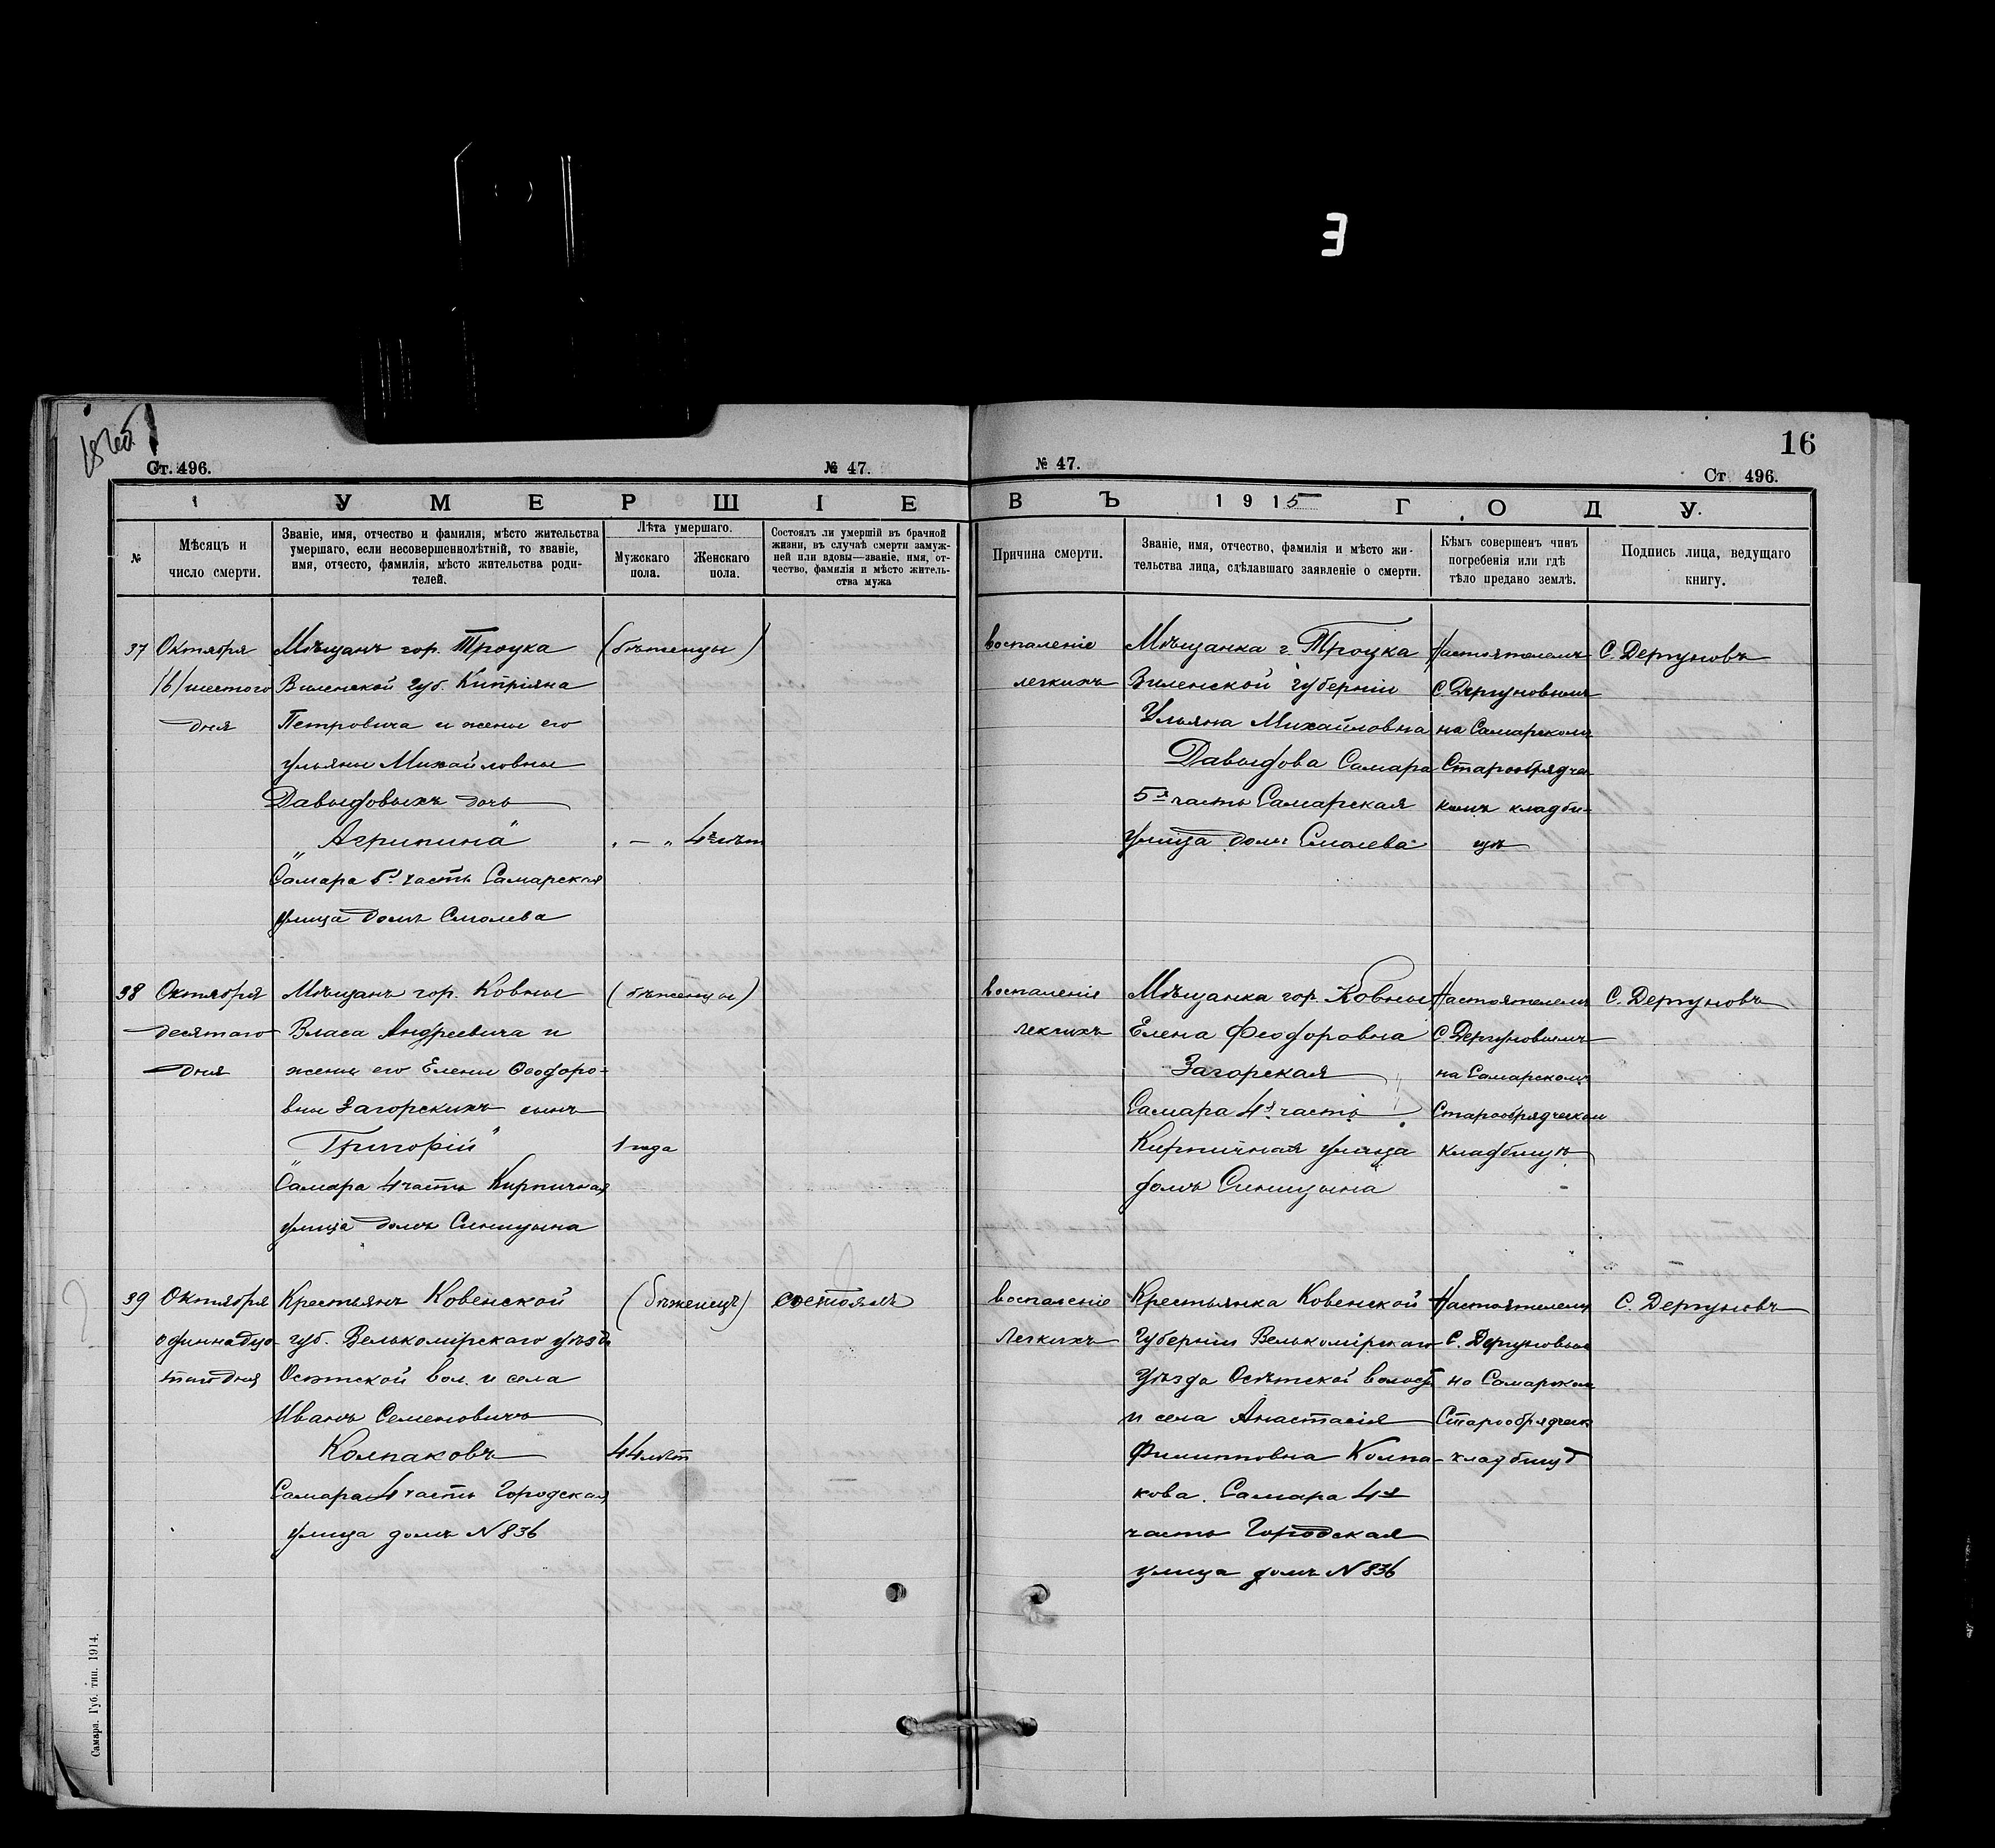 Е
16
Ст. 496.
№ 47.
№ 47.
Ст 496.
УМЕРШІЕ
ВЪ 1915 ГОДУ.
№
Мѣсяцъ и
число смерти.
Званіе, имя, отчество и фамилія, мѣсто жительства
умершаго, если несовершеннолѣтній, то званіе,
имя, отчесто, фамилія, мѣсто жительства роди-
телей.
Лѣта умершаго.
Мужскаго
пола.
Женскаго
пола.
Состоялъ ли умершій въ брачной
жизни, въ случаѣ смерти замуж-
ней или вдовы—званіе, имя, от-
чество, фамилія и мѣсто житель-
ства мужа
Причина смерти.
Званіе, имя, отчество, фамилія и мѣсто жи-
тельства лица, сдѣлавшаго заявленіе о смерти.
Кѣмъ совершенъ чинъ
погребенія или гдѣ
тѣло предано землѣ.
Подпись лица, ведущаго
книгу.
37
Октября
/6/ шестого
дня
Мѣщанъ гор. Троцка
Виленской Губ. Кипріяна
Петровича и жены его
Ульяны Михайловны
Давыдовыхъ дочь
„Агрипина"
Самара 5я часть Самарская
улица домъ Смолева
(бѣженцы)
„ — „
4 лѣт
воспаленіе
легкихъ
Мѣщанка г. Троцка
Виленской губерніи
Ульяна Михайловна
Давыдова Самара
5я часть Самарская
улица домъ Смолева
Настоятелемъ
С. Дергуновымъ
на Самарскомъ
Старообрядчес
комъ кладби-
щѣ
С. Дергуновъ
38
Октября
десятаго
дня
Мѣщанъ гор. Ковны
Власа Андреевича и
жены его Елены Феодоро-
вны Загорскихъ сынъ
„Григорій"
Самара 4 часть Кирпичная
улица домъ Синицына
(бѣженцы)
1 года
воспаленіе
легкихъ
Мѣщанка гор. Ковны
Елена Феодоровна
Загорская
Самара 4я часть
Кирпичная улица
домъ Синицына
Настоятелемъ
С. Дергуновымъ
на Самарскомъ
Старообрядческом
кладбищѣ
С. Дергуновъ
39
Октября
одиннадца-
таго дня
Крестьянъ Ковенской
губ. Велькомірскаго уѣзда
Осѣтской вол. и села
Иванъ Семеновичъ
Колпаковъ
Самара 4 часть Городская
улица домъ N 836
(бѣженецъ)
44 лѣт
состоялъ
воспаленіе
Легкихъ
Крестьянка Ковенской
Губерніи Велькомірскаго
Уѣзда Осѣтской волости
и села Анастасія
Филипповна Колпа-
кова. Самара 4я
часть Городская
улица домъ N 836
Настоятелемъ
С. Дергуновым
на Самарском
Старообрядческ
кладбищѣ
С. Дергуновъ
Самара. Губ. тип. 1914.